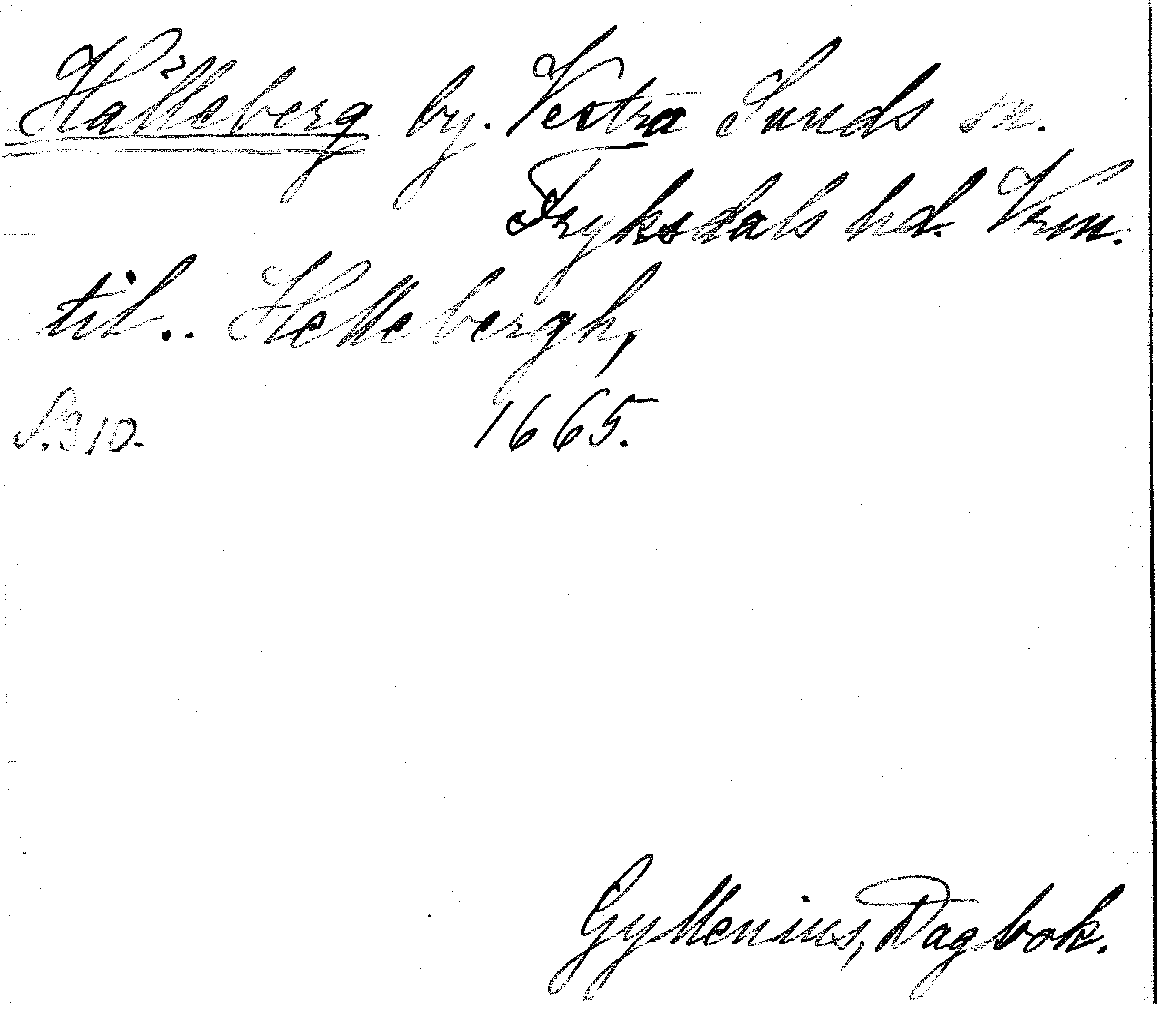 Hälleberg by. Vestra Sunds sn.
Fryksdals hd. Vrm.
til.. Hellebergh,
S.310. 1665.
Gyllenius, Dagbok.